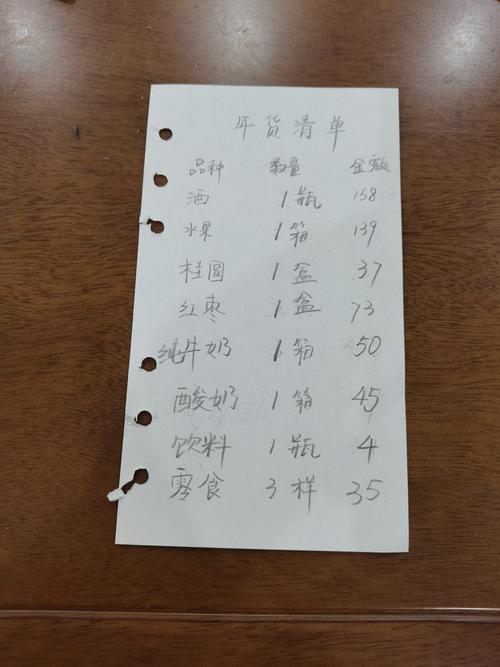 年货清单
品种 数量 金额
酒 1瓶 158
水果 1箱 139
桂圆 1盒 37
红枣 1盒 73
纯牛奶 1箱 50
酸奶 1箱 45
饮料 1瓶 4
零食 3样 35